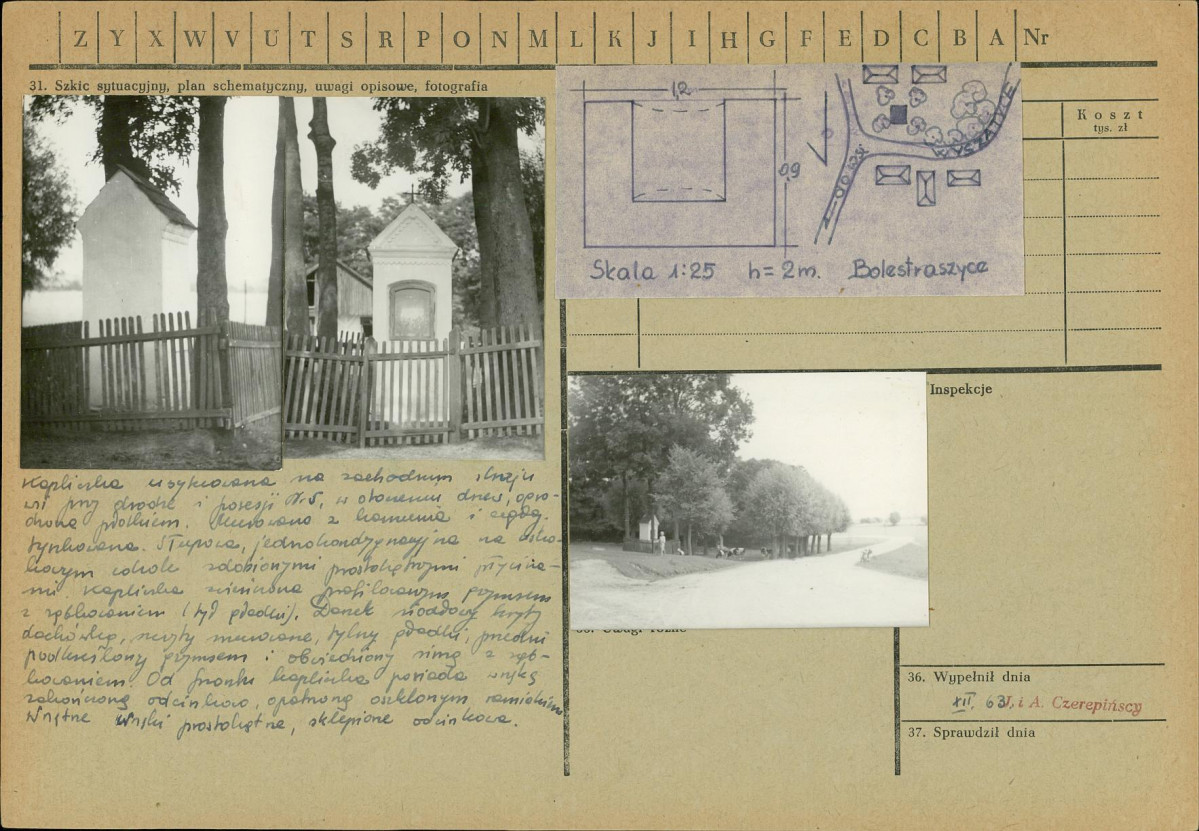 Z Y X W V U T S R P O N M L K J I H G F E D C B A Nr
31. Szkic sytuacyjny, plan schematyczny, uwagi opisowe, fotografia
1,2
0,9
WYSZATYCE
Skala 1:25 h=2m. Bolestraszyce
Koszt
tys. zł
Kapliczka usytuowana na zachodnim skraju
wsi przy drodze i posesji Nr 5, w otoczeniu drzew, ogro-
dzona płotkiem. Murowana z kamienia i cegły,
tynkowana. Słupowa, jednokondygnacyjna na
cokole zdobionymi prostokątnymi płycina-
mi. Kapliczka zwieńczona profilowanym gzymsem
z ząbkowaniem (tył gładki). Daszek siodłowy kryty
dachówką, szczyty murowane, tylny gładki, przedni
podkreślony gzymsem i obwiedziony simą z ząb-
kowaniem. Od frontu kapliczka posiada wnękę
zakończoną odcinkowo, opatrzoną oszklonym ramiakiem
Wnętrze wnęki prostokątne, sklepione odcinkowo.
Inspekcje
Uwagi różne
36. Wypełnił dnia
XII. 63 J. i A. Czerepińscy
37. Sprawdził dnia